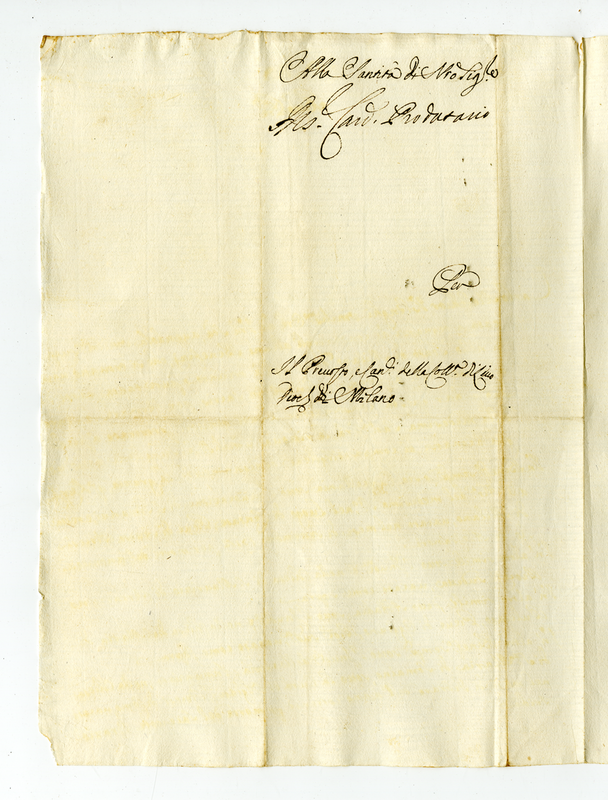 Alla Santità di Nro Sig.re
Card. Prodatario
Per
Il Preuosto, e Can.ci della Coll.ta di
Dioc. di Milano